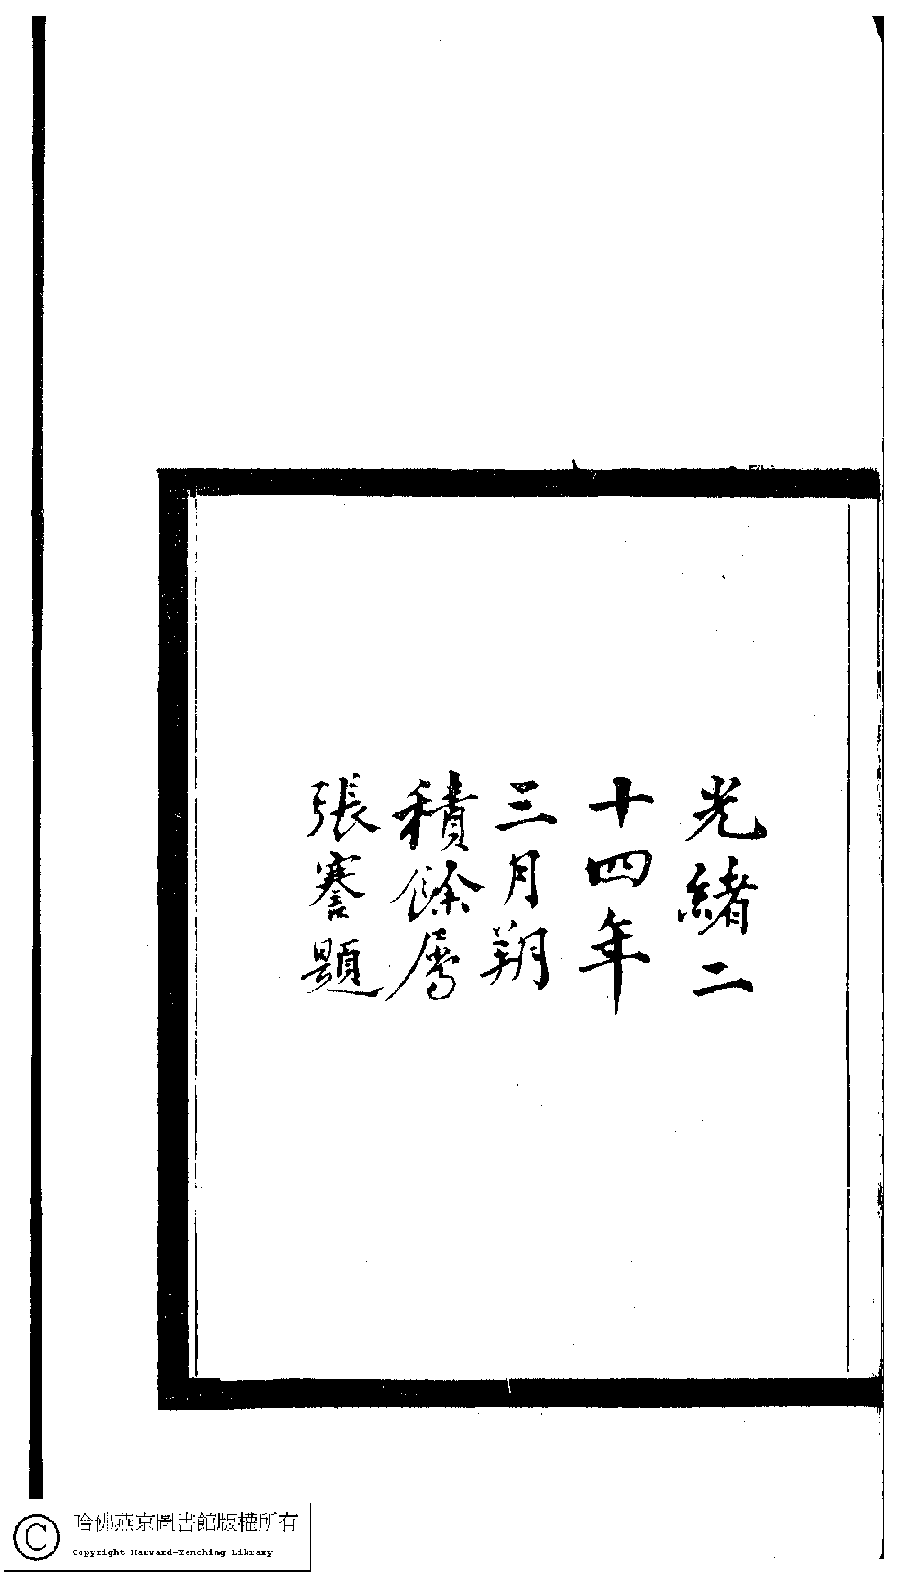 光緒二
十四年
三月朔
積餘屬
張謇題
哈佛燕京圖書館版權所有
Copyright Harvard-Yenching Library